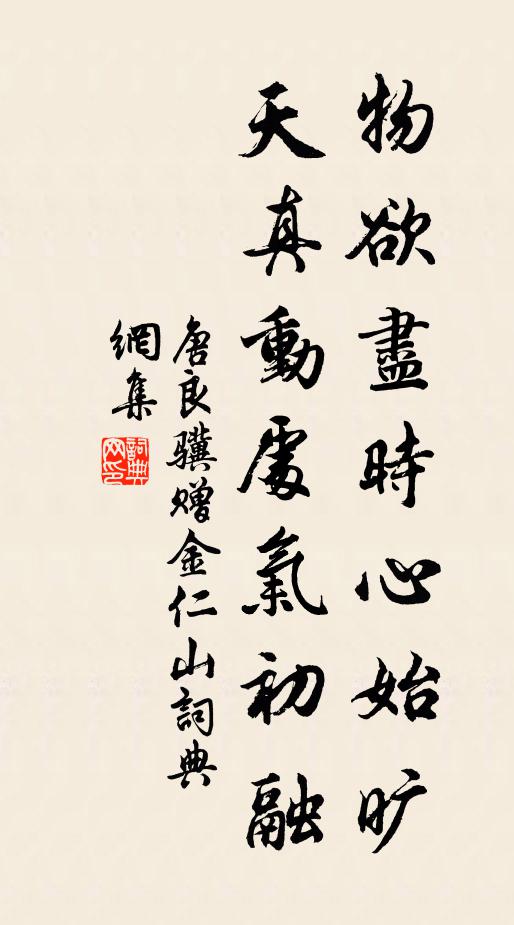 物欲盡時心始旷
天真動處氣初融
唐良骥赠金仁山詞典
網集
詞典
网印